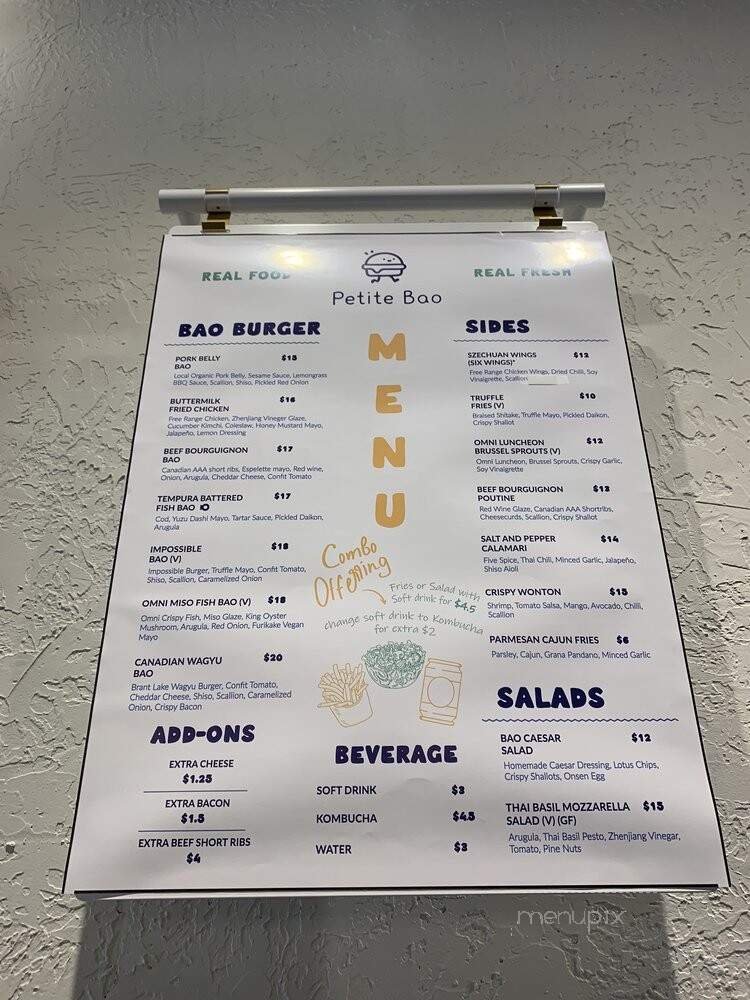 REAL FOOD
REAL FRESH
Petite Bao
MENU
BAO BURGER
PORK BELLY $15
BAO
Local Organic Pork Belly, Sesame Sauce, Lemongrass
BBQ Sauce, Scallion, Shiso, Pickled Red Onion
BUTTERMILK $16
FRIED CHICKEN
Free Range Chicken, Zhenjiang Vineger Glaze,
Cucumber Kimchi, Coleslaw, Honey Mustard Mayo,
Jalapeño, Lemon Dressing
BEEF BOURGUIGNON $17
BAO
Canadian AAA short ribs, Espelette mayo, Red wine,
Onion, Arugula, Cheddar Cheese, Confit Tomato
TEMPURA BATTERED $17
FISH BAO
Cod, Yuzu Dashi Mayo, Tartar Sauce, Pickled Daikon,
Arugula
IMPOSSIBLE $18
BAO (V)
Impossible Burger, Truffle Mayo, Confit Tomato,
Shiso, Scallion, Caramelized Onion
OMNI MISO FISH BAO (V) $18
Omni Crispy Fish, Miso Glaze, King Oyster
Mushroom, Arugula, Red Onion, Furikake Vegan
Mayo
CANADIAN WAGYU $20
BAO
Brant Lake Wagyu Burger, Confit Tomato,
Cheddar Cheese, Shiso, Scallion, Caramelized
Onion, Crispy Bacon
ADD-ONS
EXTRA CHEESE
$1.25
EXTRA BACON
$1.5
EXTRA BEEF SHORT RIBS
$4
Combo
Offering
Fries or Salad with
Soft drink for $4.5
change soft drink to Kombucha
for extra $2
BEVERAGE
SOFT DRINK $3
KOMBUCHA $4.5
WATER $3
SIDES
SZECHUAN WINGS $12
(SIX WINGS)*
Free Range Chicken Wings, Dried Chilli, Soy
Vinaigrette, Scallion
TRUFFLE $10
FRIES (V)
Braised Shitake, Truffle Mayo, Pickled Daikon,
Crispy Shallot
OMNI LUNCHEON $12
BRUSSEL SPROUTS (V)
Omni Luncheon, Brussel Sprouts, Crispy Garlic,
Soy Vinaigrette
BEEF BOURGUIGNON $13
POUTINE
Red Wine Glaze, Canadian AAA Shortribs,
Cheesecurds, Scallion, Crispy Shallot
SALT AND PEPPER $14
CALAMARI
Five Spice, Thai Chili, Minced Garlic, Jalapeño,
Shiso Aioli
CRISPY WONTON $15
Shrimp, Tomato Salsa, Mango, Avocado, Chilli,
Scallion
PARMESAN CAJUN FRIES $6
Parsley, Cajun, Grana Pandano, Minced Garlic
SALADS
BAO CAESAR $12
SALAD
Homemade Caesar Dressing, Lotus Chips,
Crispy Shallots, Onsen Egg
THAI BASIL MOZZARELLA $15
SALAD (V) (GF)
Arugula, Thai Basil Pesto, Zhenjiang Vinegar,
Tomato, Pine Nuts
menupix